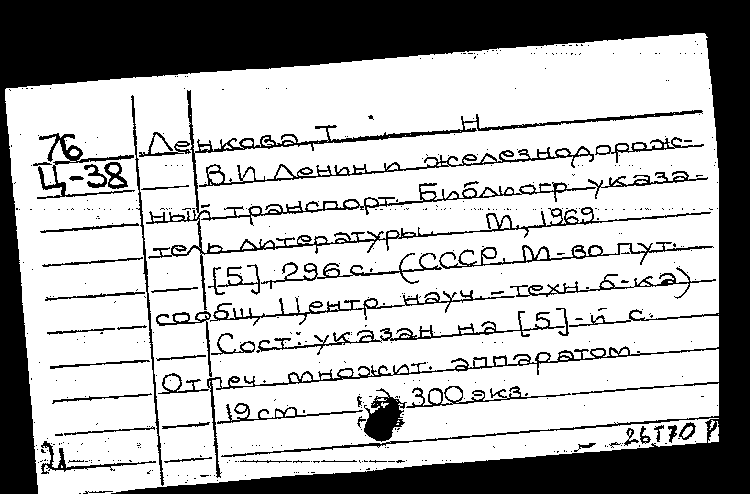 76
Ц-38
Ленкова, Т Н
В.И Ленин и железнодорож-
ный транспорт. Библиогр указа-
тель литературы. М., 1969.
[5], 296 с. (СССР. М-во пут.
сообщ. Центр. науч.-техн. б-ка)
Сост: указан на [5]-й с.
Отпеч. множит. аппаратом.
19 см. 300 экз.
21
26170 Р